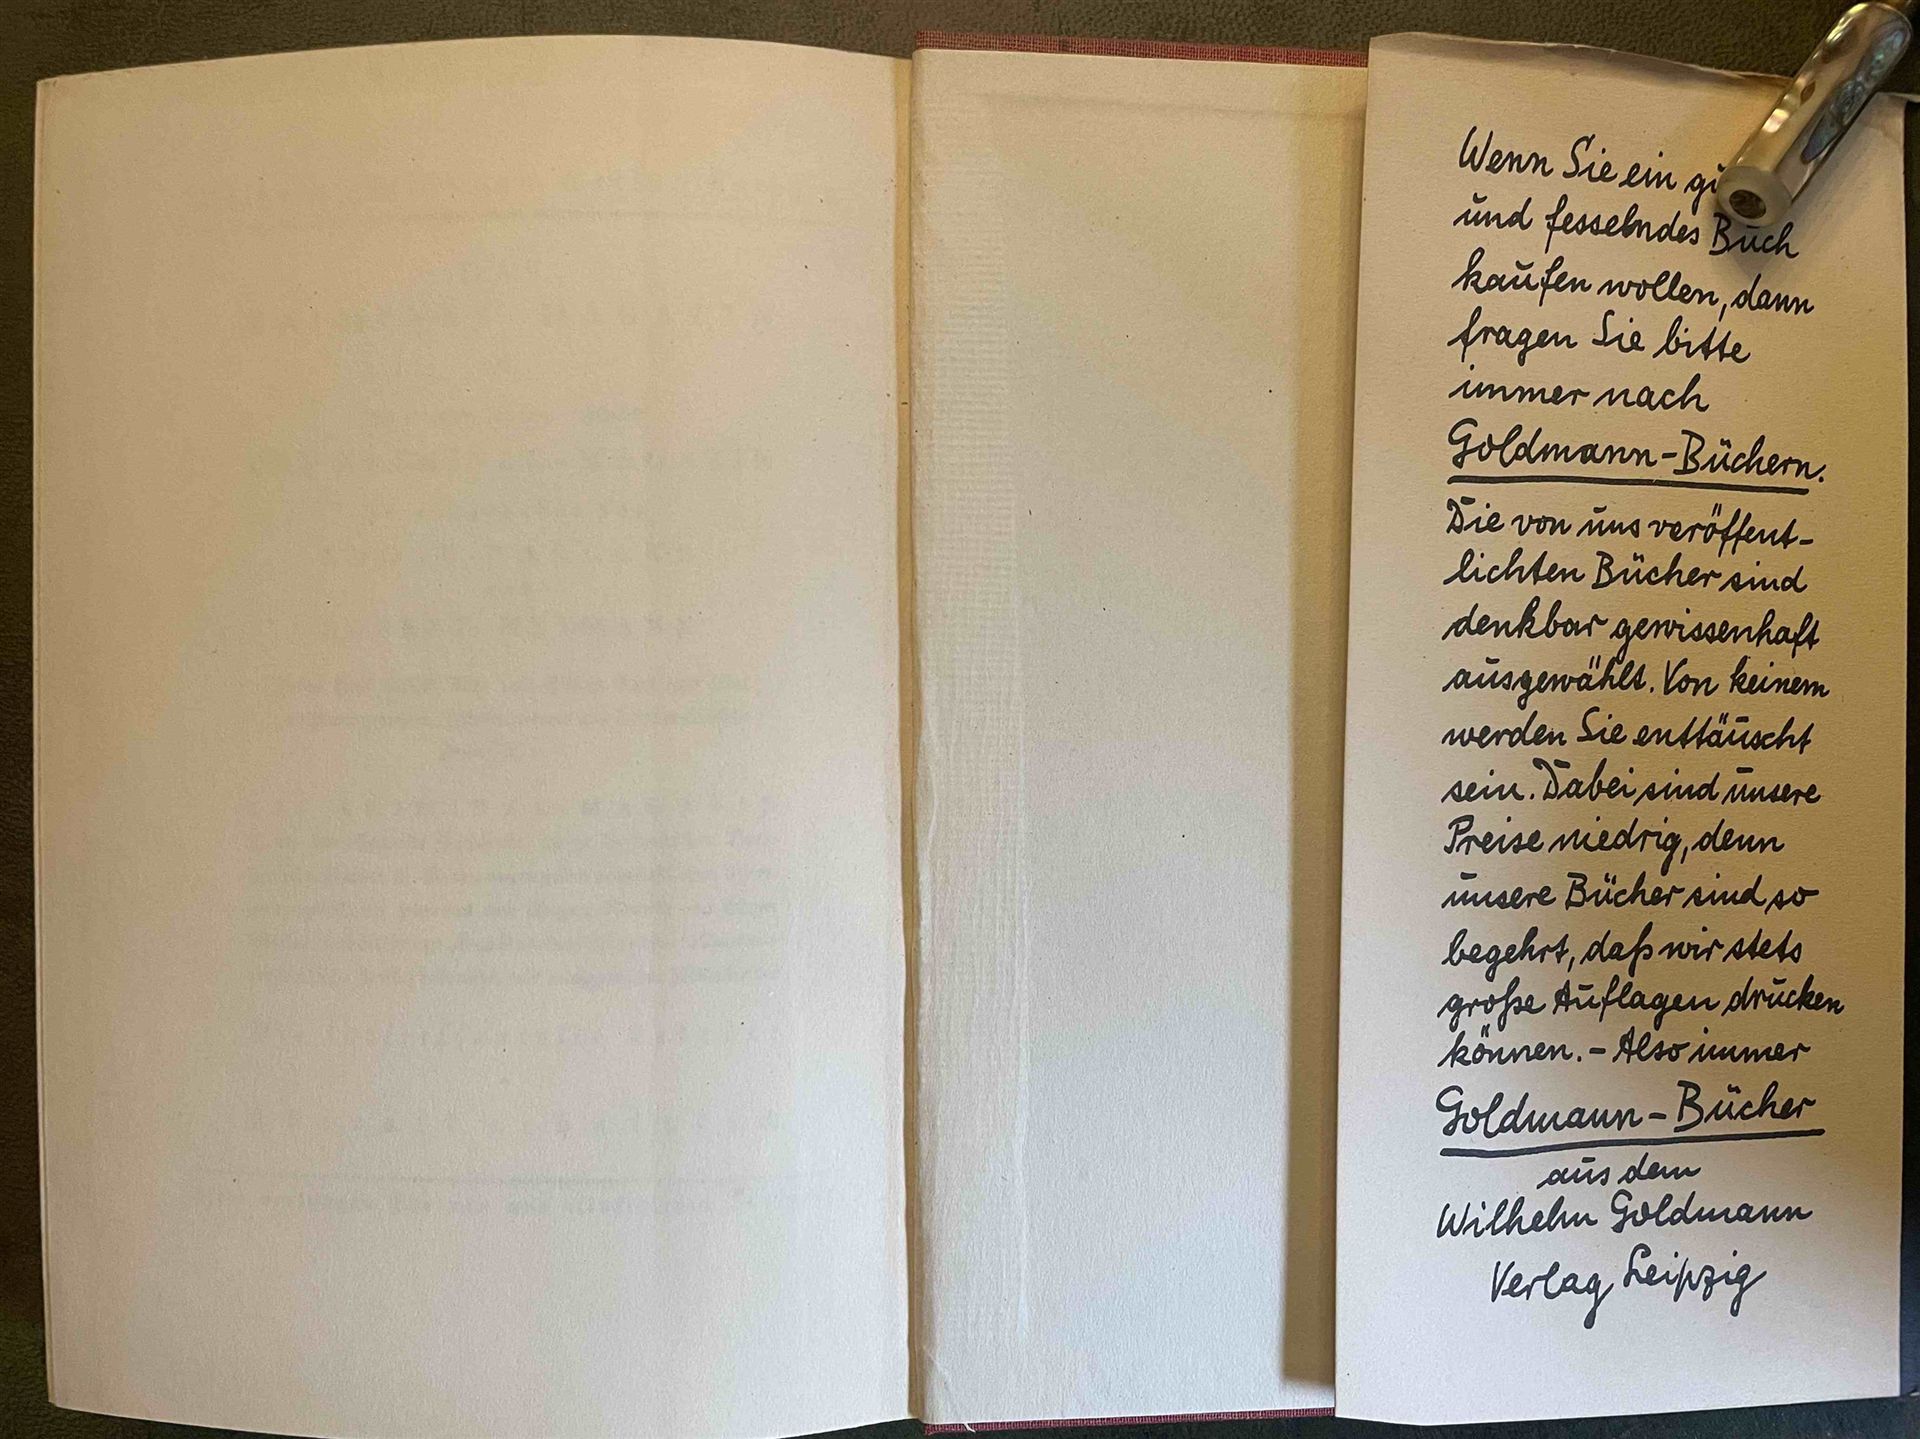 Wenn Sie ein
und fesselndes Buch
kaufen wollen, dann
fragen Sie bitte
immer nach
Goldmann-Büchern.
Die von uns veröffent-
lichten Bücher sind
denkbar gewissenhaft
ausgewählt. Von keinem
werden Sie enttäuscht
sein. Dabei sind unsere
Preise niedrig, denn
unsere Bücher sind so
begehrt, daß wir stets
große Auflagen drucken
können. - Also immer
Goldmann-Bücher
aus dem
Wilhelm Goldmann
Verlag Leipzig